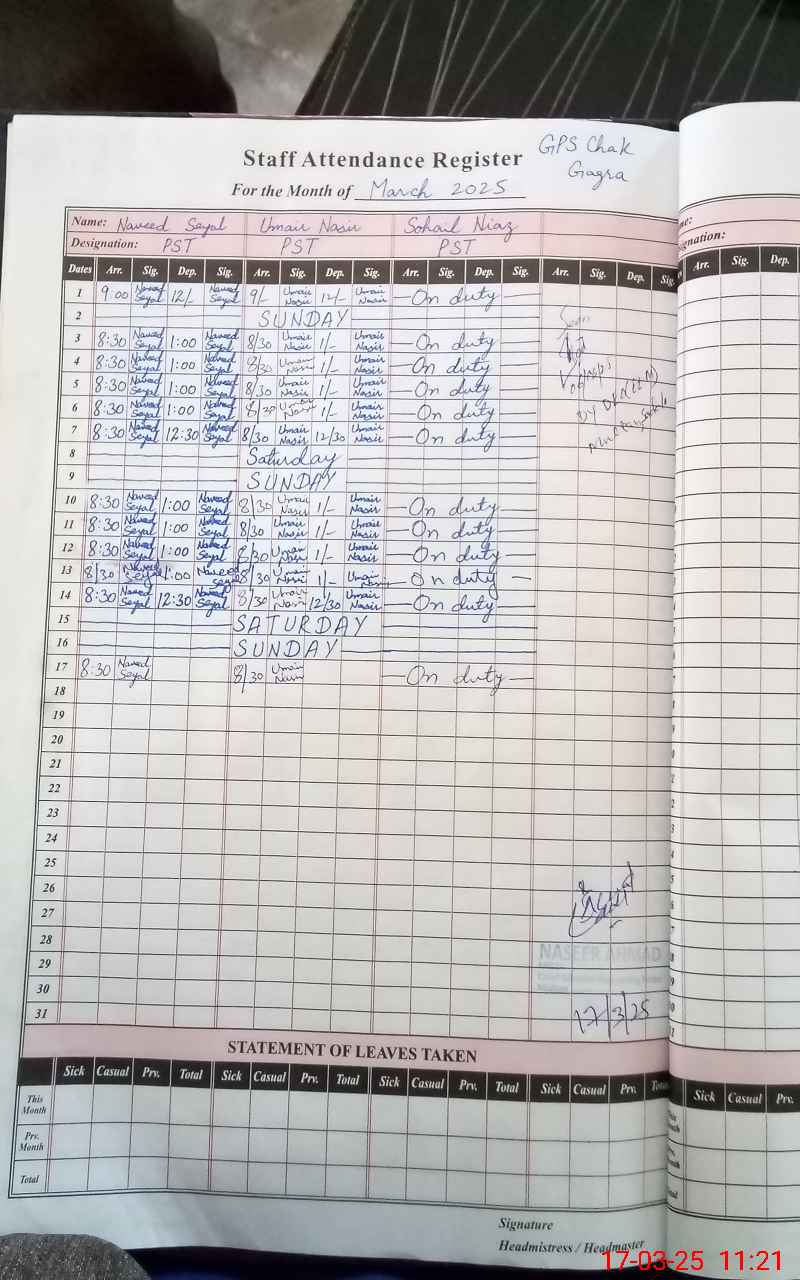 GPS Chak
Gagra
Staff Attendance Register
For the Month of March 2025
Name: Naveed Seyal Umair Nasir Sohail Niaz
Designation: PST PST PST
Dates Arr. Sig. Dep. Sig. Arr. Sig. Dep. Sig. Arr. Sig. Dep. Sig. Arr. Sig. Dep. Sig. Arr. Sig. Dep.
1 9:00 Naveed Seyal 12/- Naveed Seyal 9/- Umair Nasir 12/- Umair Nasir On duty
2 SUNDAY
3 8:30 Naveed Seyal 1:00 Naveed Seyal 8/30 Umair Nasir 1/- Umair Nasir On duty
4 8:30 Naveed Seyal 1:00 Naveed Seyal 8/30 Umair Nasir 1/- Umair Nasir On duty
5 8:30 Naveed Seyal 1:00 Naveed Seyal 8/30 Umair Nasir 1/- Umair Nasir On duty
6 8:30 Naveed Seyal 1:00 Naveed Seyal 8/30 Umair Nasir 1/- Umair Nasir On duty
7 8:30 Naveed Seyal 12:30 Naveed Seyal 8/30 Umair Nasir 12/30 Umair Nasir On duty
8 Saturday
9 SUNDAY
10 8:30 Naveed Seyal 1:00 Naveed Seyal 8/30 Umair Nasir 1/- Umair Nasir On duty
11 8:30 Naveed Seyal 1:00 Naveed Seyal 8/30 Umair Nasir 1/- Umair Nasir On duty
12 8:30 Naveed Seyal 1:00 Naveed Seyal 8/30 Umair Nasir 1/- Umair Nasir On duty
13 8/30 Naveed Seyal 1:00 Naveed Seyal 8/30 Umair Nasir 1/- Umair Nasir On duty
14 8:30 Naveed Seyal 12:30 Naveed Seyal 8/30 Umair Nasir 12/30 Umair Nasir On duty
15 SATURDAY
16 SUNDAY
17 8:30 Naveed Seyal 8/30 Umair Nasir On duty
18
19
20
21
22
23
24
25
26
27
28
29
30
31
NASEER AHMAD
17/3/25
STATEMENT OF LEAVES TAKEN
Sick Casual Prv. Total Sick Casual Prv. Total Sick Casual Prv. Total Sick Casual Prv. Total Sick Casual Prv.
This Month
Prv. Month
Total
Signature
Headmistress / Headmaster
17-03-25 11:21